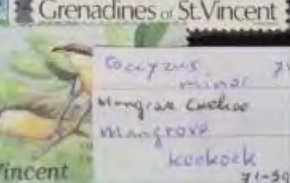 Grenadines of St.Vincent
Coccyzus
minor
Mangrove Cuckoo
Mangrove
koekoek
71-59
incent